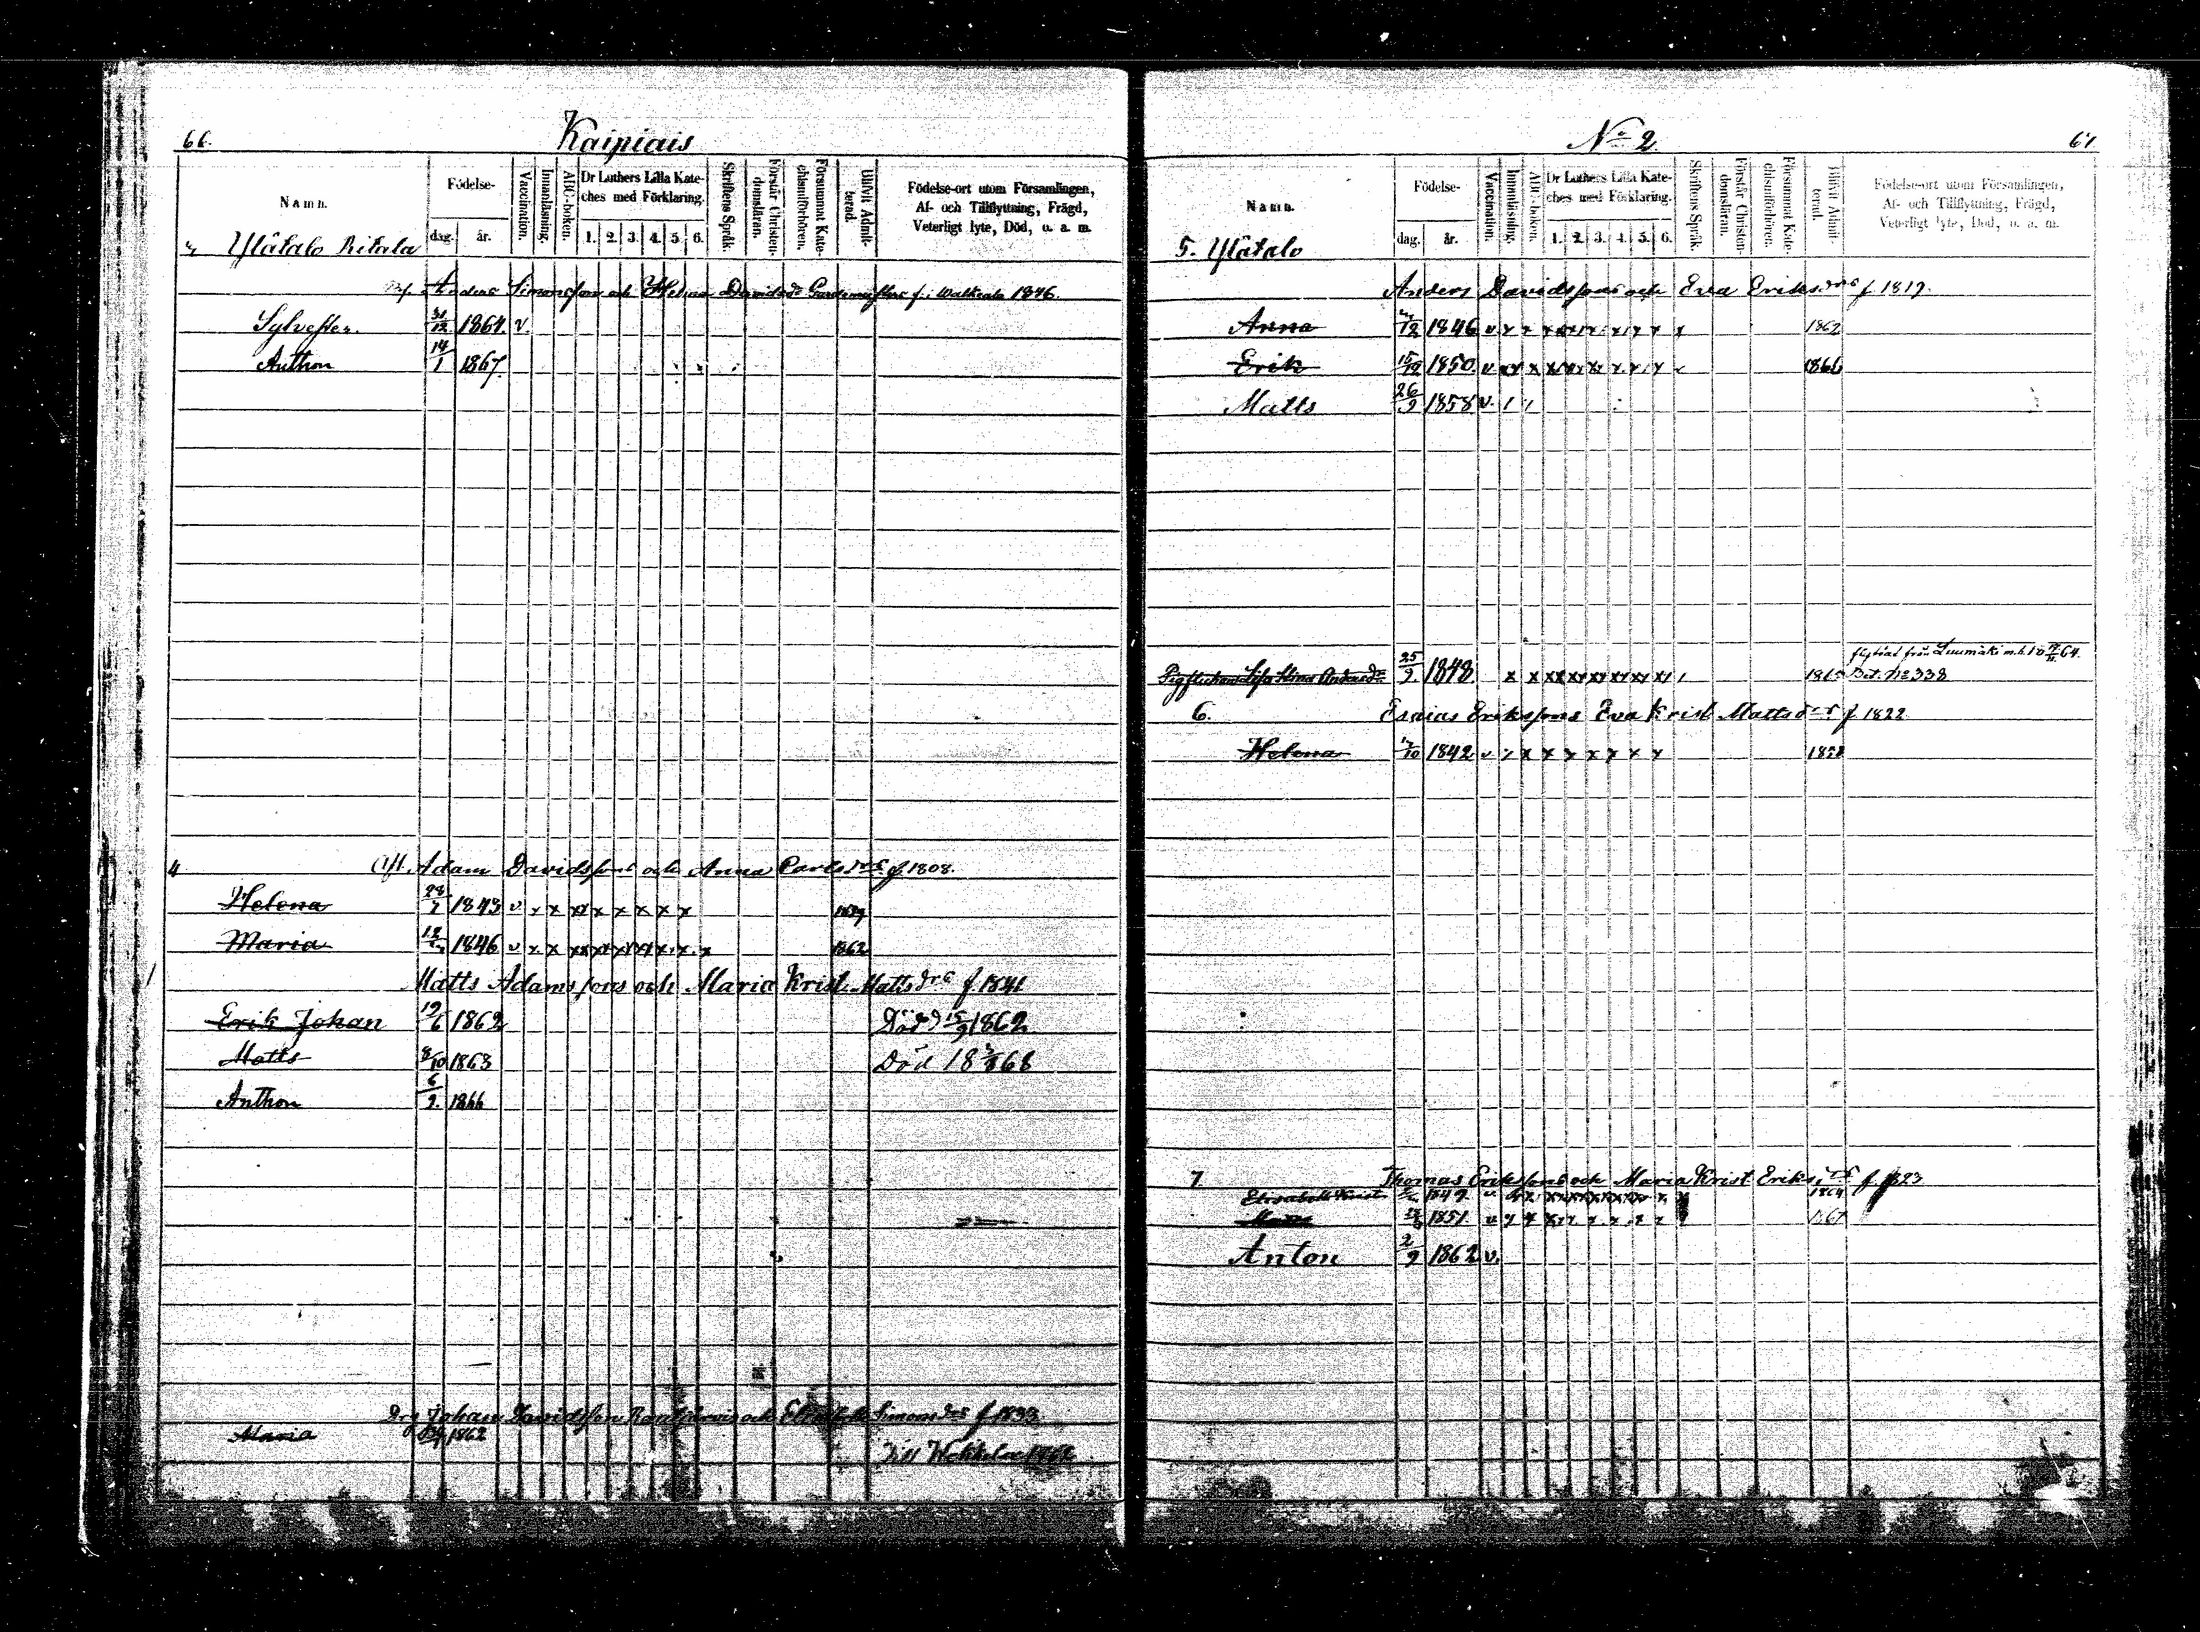 66.
Kaipiais
Namn.
Födelse-
dag. år.
Vaccination.
Innanläsning.
ABC-boken.
Dr Luthers Lilla Kate-
ches med Förklaring.
1. 2. 3. 4. 5. 6.
Skriftens Språk.
Förstår Christen-
domsläran.
Försummat Kate-
chismiförhören.
Blifvit Admit-
terad.
Födelse-ort utom Församlingen,
Af- och Tillflyttning, Frägd,
Veterligt lyte, Död, u. a. m.
Ylätalo Ritala
Anders Simonsson och Helena Davidsdr f. i Walkeala 1846.
Sylvester 31/12 1864 v
Anthon 14/1 1867
4 Aft. Adam Davidssons och Anna Carlsdrs f. 1808.
Helena 28/7 1843 v x x xx x x x x x 1859
Maria 12 1846 v x x xx xx xx xx x x x 1862
Matts Adamssons och Maria Krist. Mattsdrs f. 1841
Erik Johan 19/6 1862 Död 15/9 1862
Matts 8/10 1863 Död 18 3/8 68
Anthon 6/9 1866
Johan Davidsson och Simonsdrs f 1833
Maria 1862
Till Wekkelax
No 2.
67
Namn.
Födelse-
dag. år.
Vaccination.
Innanläsning.
ABC-boken.
Dr Luthers Lilla Kate-
ches med Förklaring.
1. 2. 3. 4. 5. 6.
Skriftens Språk.
Förstår Christen-
domsläran.
Försummat Kate-
chismiförhören.
Blifvit Admit-
terad.
Födelse-ort utom Församlingen,
Af- och Tillflyttning, Frägd,
Veterligt lyte, Död, u. a. m.
5. Ylätalo
Anders Davidssons och Eva Eriksdrs f 1819.
Anna /12 1846 v x x 1862
Erik 15/12 1850 v x x 1866
Matts 26/9 1858 v
flyttad från Luumäki
25/9 1848 x x xx xx xx xx xx xx Bet. No 338
6. Esaias Erikssons Eva Krist Mattsdrs f 1822
Helena /10 1842 v x x x x x x x x 1858
7 Thomas Erikssons och Maria Krist Eriksdrs f. 1823
Elisabeth Krist 1849 v x x 1864
1851 v x x x x x x x x
Anton 2/9 1862 v.